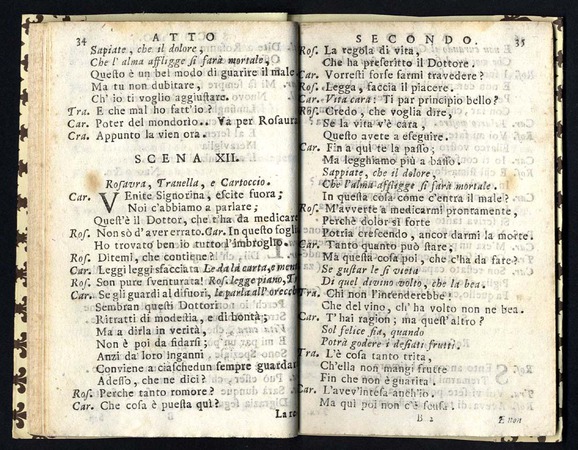 34 ATTO
Sapiate, che il dolore,
Che l'alma affligge si farà mortale,
Questo è un bel modo di guarire il male
Ma tu non dubitare,
Ch'io ti voglio aggiustare.
Tra. E che mal ho fatt'io?
Car. Poter del mondorio.. Va per Rosaura
Cra. Appunto la vien ora.
SCENA XII.
Rosaura, Tranella, e Cartoccio.
Car. VEnite Signorina, escite fuora;
Noi c'abbiamo a parlare;
Quest'è il Dottor, che t'ha da medicare
Ros. Non sò d'aver errato. Car. In questo foglio
Ho trovato ben io tutto l'imbroglio.
Ros. Ditemi, che contiene?
Car. Leggi leggi sfacciata Le da la carta, e
Ros. Son pure sventurata! Ros. legge piano,
Car. Se gli guardi al difuori, le parla all'
Sembran questi Dottori
Ritratti di modestia, e di bontà;
Ma a dirla in verità,
Non è poi da fidarsi;
Anzi da loro inganni
Conviene a ciaschedun sempre guardar
Adesso, che ne dici?
Ros. Perche tanto romore?
Car. Che cosa è puesta quì?
La re
SECONDO. 35
Ros. La regola di vita,
Che ha preferitto il Dottore.
Car. Vorresti forse farmi travedere?
Ros. Legga, faccia il piacere.
Car. Vita cara: Ti par principio bello?
Ros. Credo, che voglia dire,
Se la vita v'è cara,
Questo avete a eseguire.
Car. Fin a quì te la passo;
Ma legghiamo più a basso.
Sappiate, che il dolore,
Che l'alma affligge si farà mortale.
In questa cosa come c'entra il male?
Ros. M'avverte a medicarmi prontamente,
Perchè dolor sì forte
Potria crescendo, ancor darmi la morte.
Car. Tanto quanto può stare;
Ma questa cosa poi, che c'ha da fare?
Se gustar le si vieta
Di quel divino volto, che la bea.
Tra. Chi non l'intenderebbe!
Che del vino, ch'ha volto non ne bea.
Car. T'hai ragion; ma quest'altro?
Sol felice fia, quando
Potrà godere i desiati frutti.
Tra. L'è cosa tanto trita,
Ch'ella non mangi frutte
Fin che non è guarita.
Car. L'avev'intesa anch'io.
Ma quì poi non c'è scusa!
B 2 E non